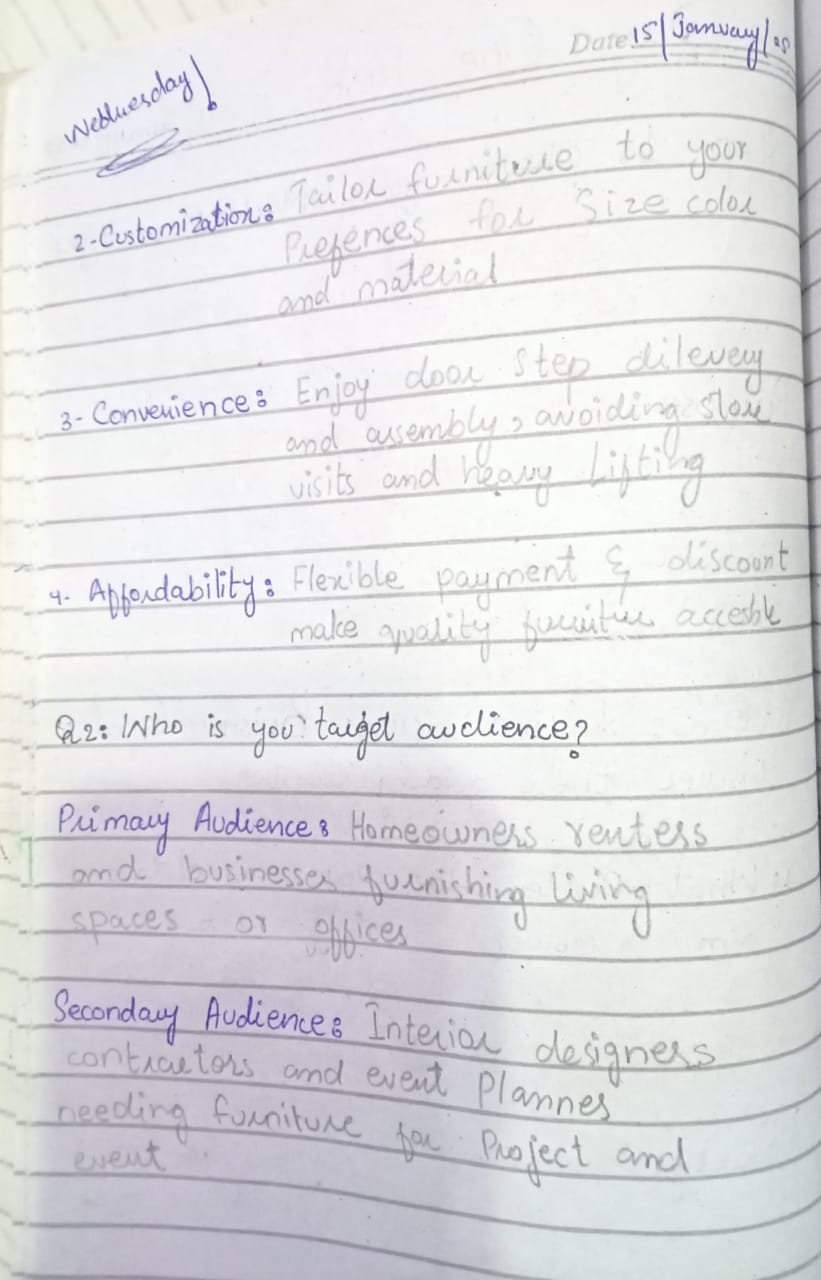 Date 15/January/25
Webnuesday!
2-Customization: Tailor furniture to your
Prefences for Size color
and material
3- Convenience: Enjoy door step dilevery
and assembly, avoiding store
visits and heavy Lifting
4- Affordability: Flexible payment & discount
make quality furnitur accesble
Q2: Who is you target audience?
Primary Audience: Homeowners renters
and businesses furnishing living
spaces or offices
Secondary Audience: Interior designers
contractors and event Plannes
needing furniture for Project and
event